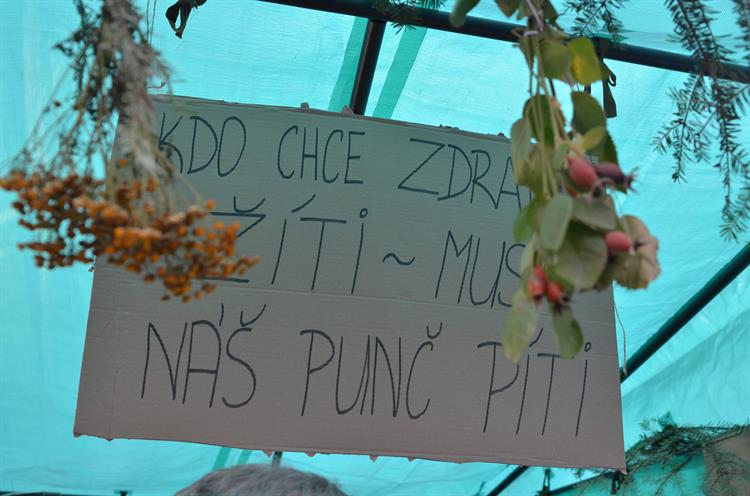 KDO CHCE ZDRA
ŽÍTI ~ MUS
NÁŠ PUNČ PÍTI